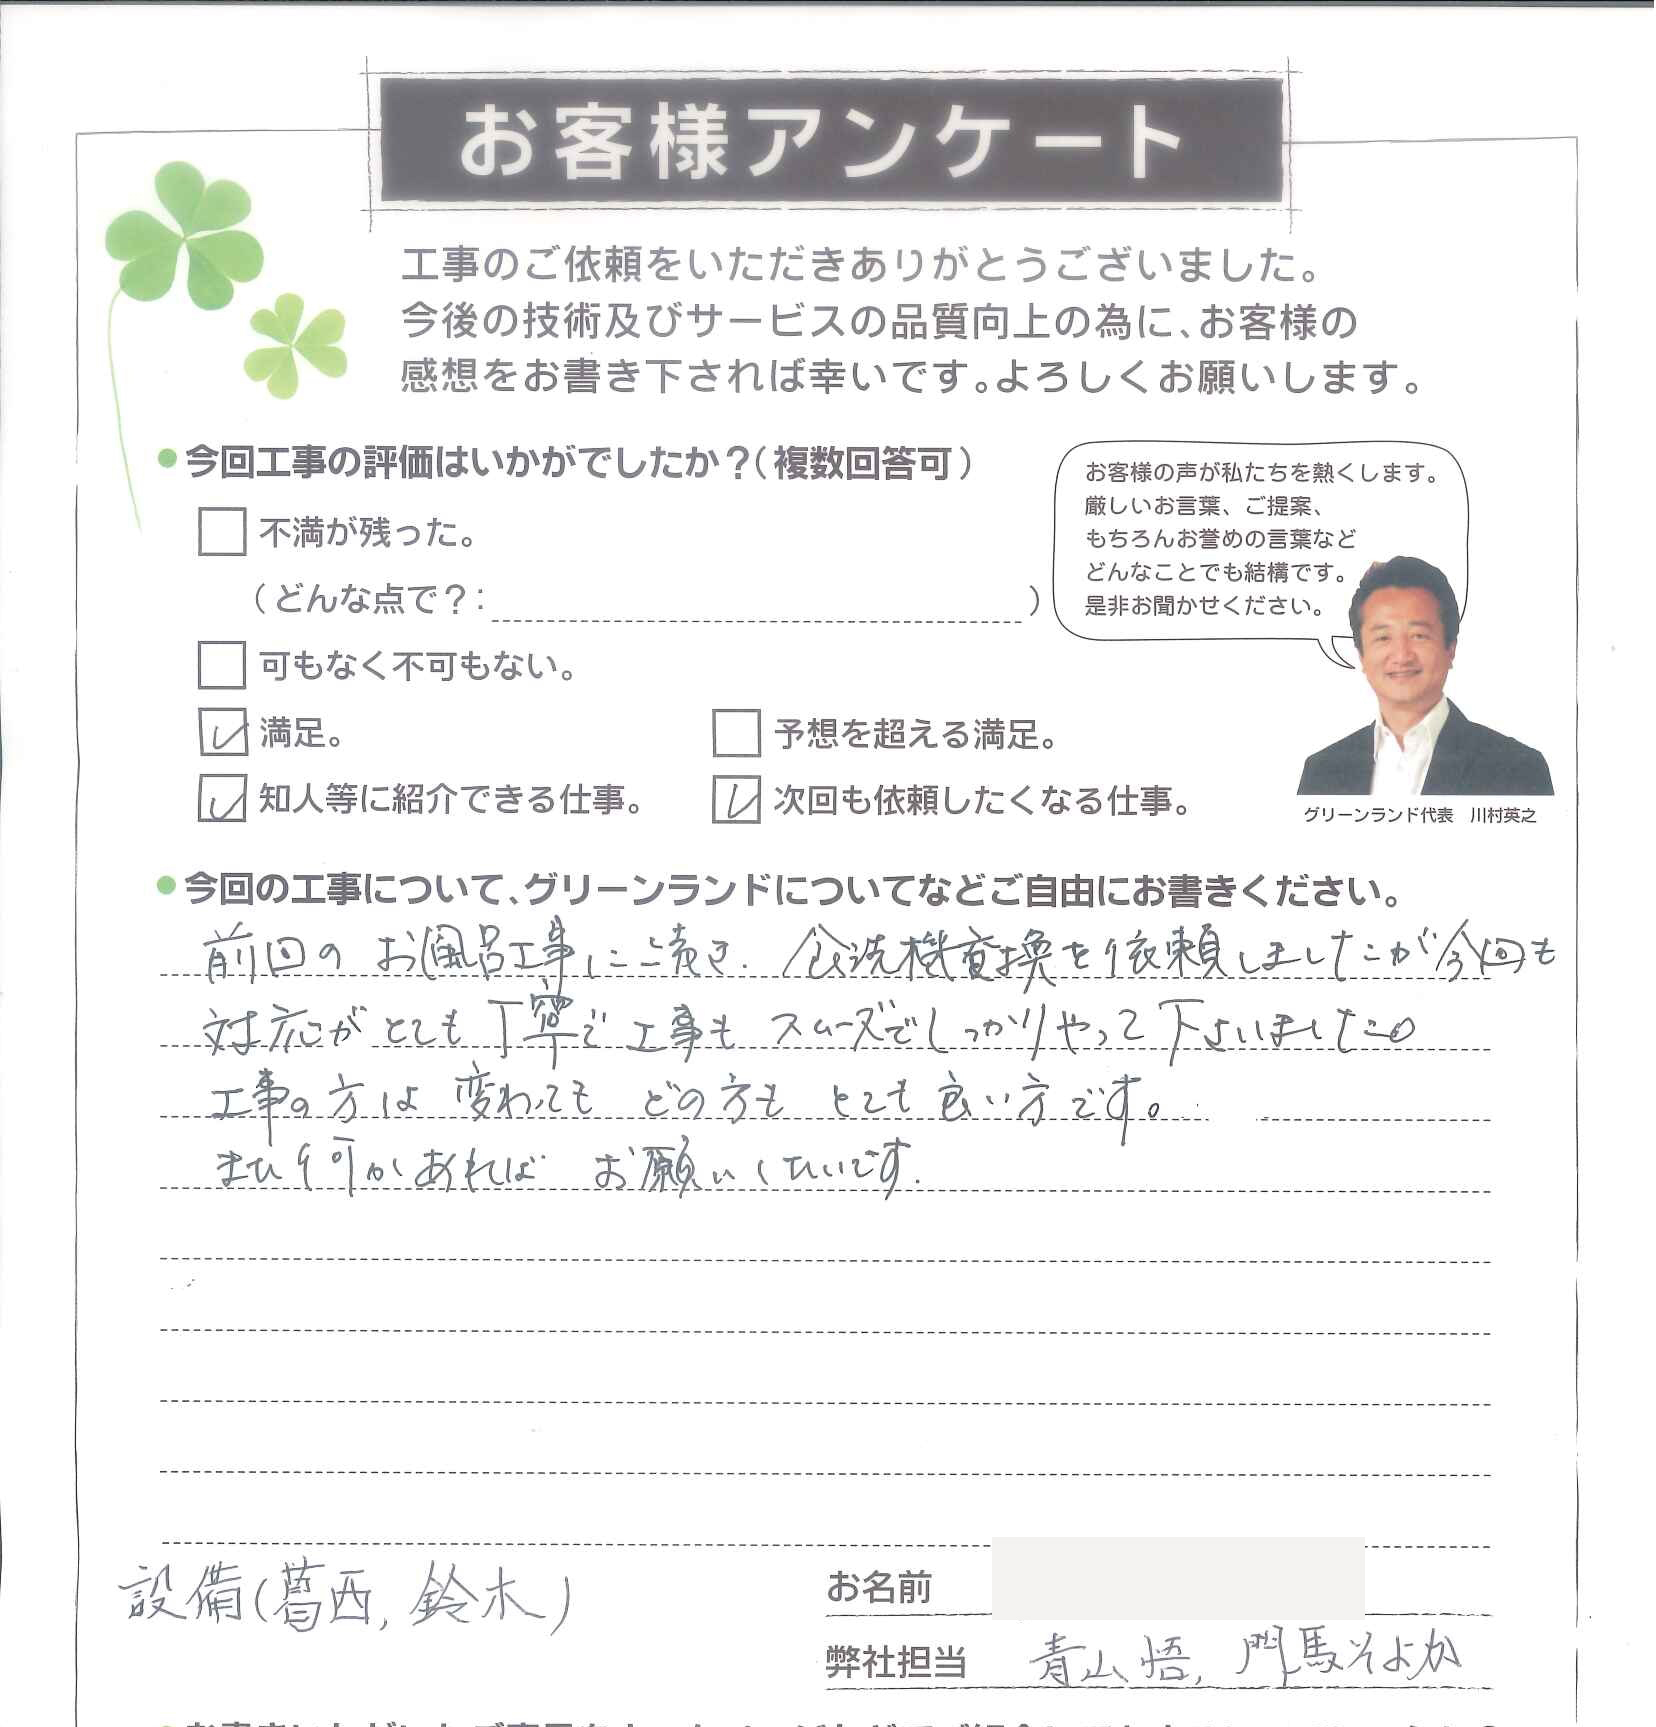 お客様アンケート
工事のご依頼をいただきありがとうございました。
今後の技術及びサービスの品質向上の為に、お客様の
感想をお書き下されば幸いです。よろしくお願いします。
●今回工事の評価はいかがでしたか？（複数回答可）
不満が残った。
（どんな点で？：　）
可もなく不可もない。
満足。
予想を超える満足。
知人等に紹介できる仕事。
次回も依頼したくなる仕事。
お客様の声が私たちを熱くします。
厳しいお言葉、ご提案、
もちろんお誉めの言葉など
どんなことでも結構です。
是非お聞かせください。
グリーンランド代表　川村英之
●今回の工事について、グリーンランドについてなどご自由にお書きください。
前回の お風呂工事にひき続き、食洗機交換を依頼しましたが今回も
対応がとても丁寧で工事もスムーズでしっかりやって下さいました。
工事の方は変わっても どの方も とても良い方です。
また何かあれば お願いしたいです。
設備(葛西, 鈴木)
お名前
弊社担当　青山悟, 門馬そよか